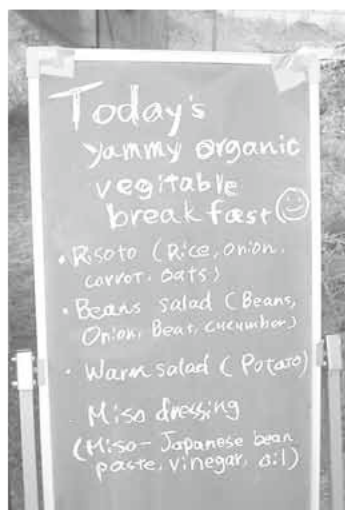 Today's
yammy organic
vegitable
breakfast
• Risoto (Rice, onion,
carrot, oats)
• Beans salad (Beans,
Onion, Beat, cucumber)
• Warm salad (Potato)
Miso dressing
(Miso - Japanese bean
paste, vinegar, oil)